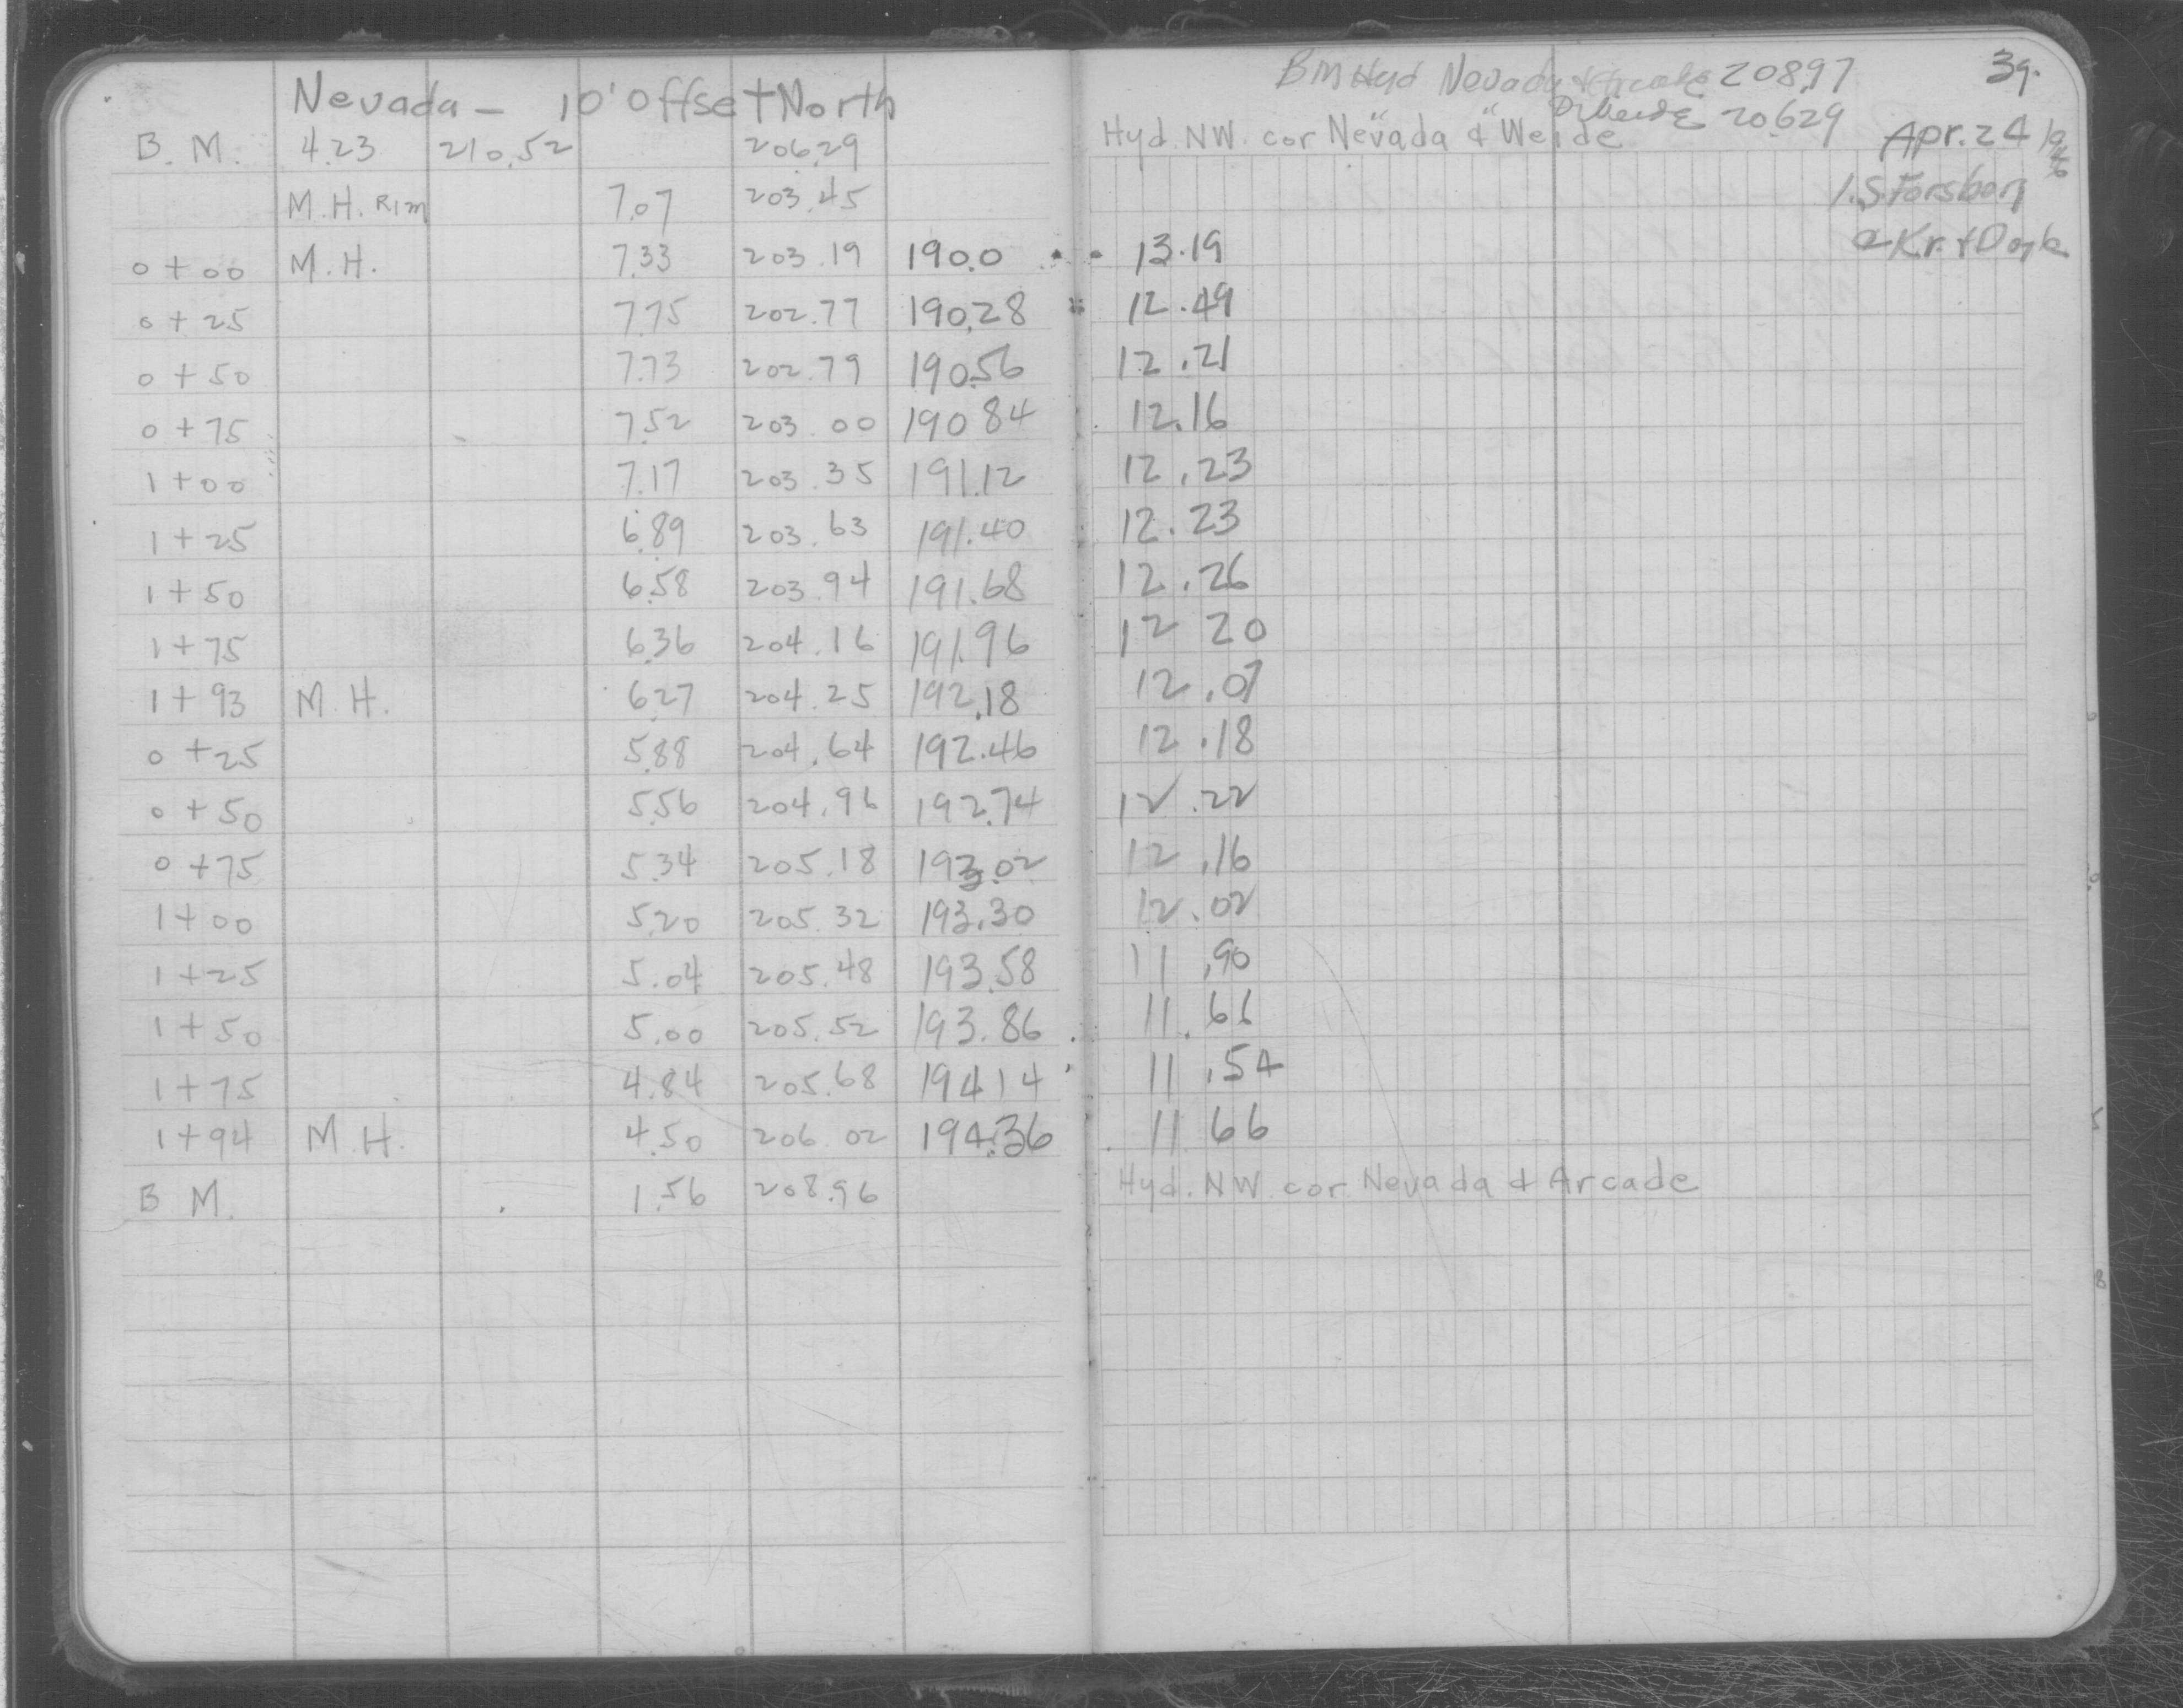 39.
BM Hyd Nevada & Arcade 208.97
Nevada - 10' Offset North
" " D. Weide 206.29
B. M. 4.23 210.52 206.29 Hyd. NW. cor Nevada & Weide Apr. 24
M. H. Rim 7.07 203.45 I. S. Forsberg
0 + 00 M. H. 7.33 203.19 190.0 13.19 & Doyle
0 + 25 7.75 202.77 190.28 12.49
0 + 50 7.73 202.79 190.56 12.21
0 + 75 7.52 203.00 190 84 12.16
1 + 00 7.17 203.35 191.12 12.23
1 + 25 6.89 203.63 191.40 12.23
1 + 50 6.58 203.94 191.68 12.26
1 + 75 6.36 204.16 191.96 12 20
1 + 93 M. H. 6.27 204.25 192.18 12.07
0 + 25 5.88 204.64 192.46 12.18
0 + 50 5.56 204.96 192.74 12.22
0 + 75 5.34 205.18 193.02 12.16
1 + 00 5.20 205.32 193.30 12.02
1 + 25 5.04 205.48 193.58 11.90
1 + 50 5.00 205.52 193.86 11.66
1 + 75 4.84 205.68 194 14 11.54
1 + 94 M. H. 4.50 206.02 194.36 11 66
B M. 1.56 208.96 Hyd. NW. cor Nevada & Arcade